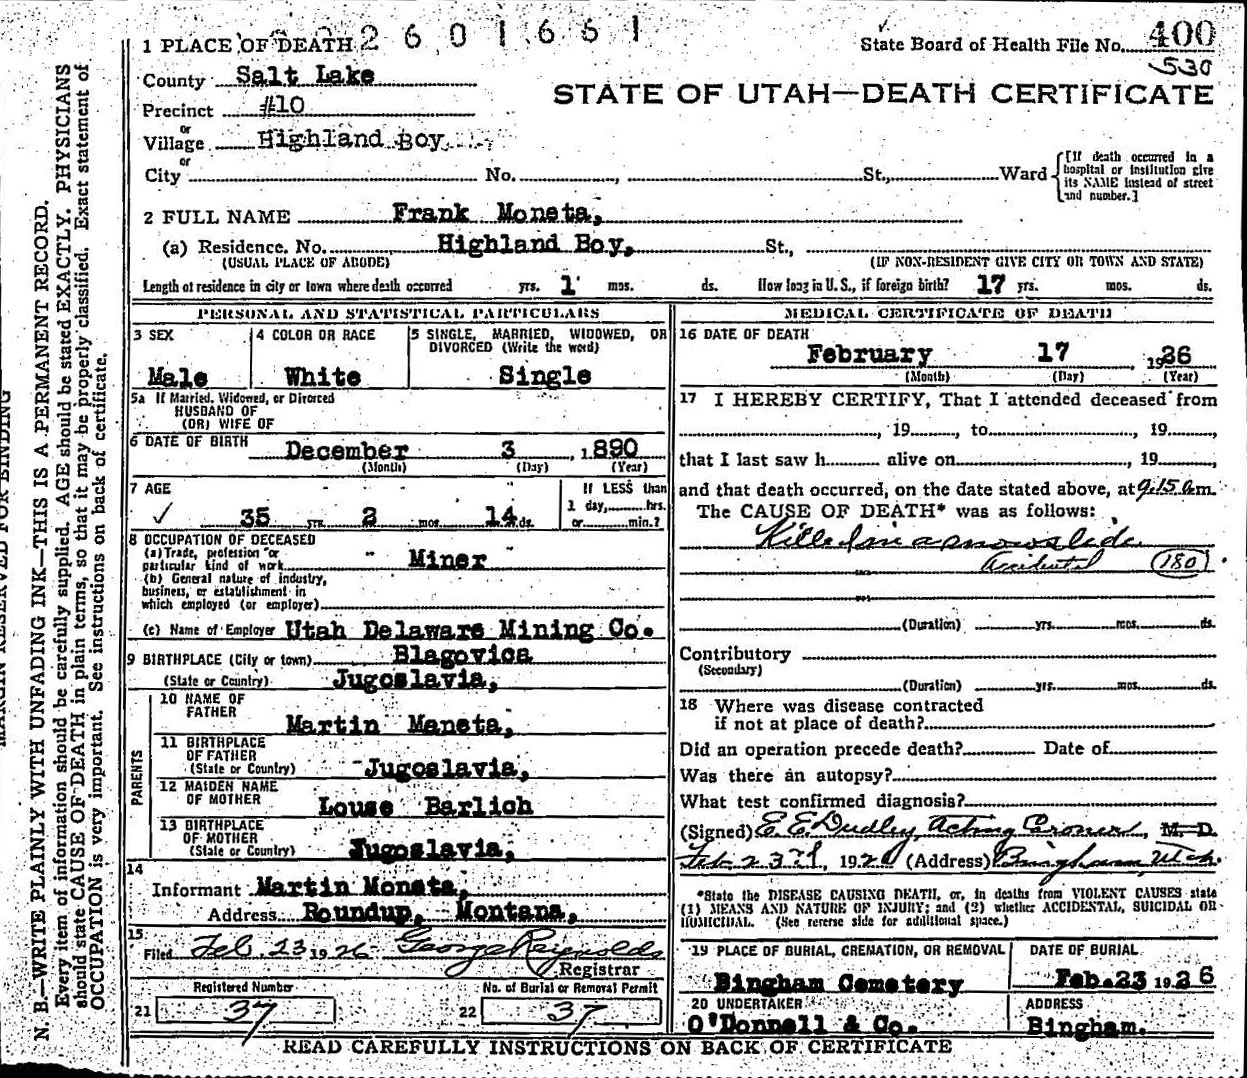 2601661
1 PLACE OF DEATH
State Board of Health File No. 400
530
County Salt Lake
STATE OF UTAH—DEATH CERTIFICATE
Precinct #10
or
Village Highland Boy
or
City No. , St., Ward
[If death occurred in a hospital or institution give its NAME instead of street and number.]
2 FULL NAME Frank Moneta,
(a) Residence. No. Highland Boy, St.,
(USUAL PLACE OF ABODE) (IF NON-RESIDENT GIVE CITY OR TOWN AND STATE)
Length of residence in city or town where death occurred yrs. 1 mos. ds. How long in U. S., if foreign birth? 17 yrs. mos. ds.
PERSONAL AND STATISTICAL PARTICULARS
3 SEX
Male
4 COLOR OR RACE
White
5 SINGLE, MARRIED, WIDOWED, OR
DIVORCED (Write the word)
Single
5a If Married, Widowed, or Divorced
HUSBAND OF
(OR) WIFE OF
6 DATE OF BIRTH December 3, 1890
(Month) (Day) (Year)
7 AGE
35 yrs. 2 mos. 14 ds.
If LESS than
1 day, hrs.
or min.?
8 OCCUPATION OF DECEASED
(a) Trade, profession or
particular kind of work Miner
(b) General nature of industry,
business, or establishment in
which employed (or employer)
(c) Name of Employer Utah Delaware Mining Co.
9 BIRTHPLACE (City or town) Blagovica
(State or Country) Jugoslavia,
PARENTS
10 NAME OF
FATHER
Martin Maneta,
11 BIRTHPLACE
OF FATHER
(State or Country) Jugoslavia,
12 MAIDEN NAME
OF MOTHER Louse Barlich
13 BIRTHPLACE
OF MOTHER
(State or Country) Jugoslavia,
14
Informant Martin Moneta,
Address Roundup, Montana,
15
Filed Feb. 23 1926 George Reynolds
Registrar
Registered Number
21 37
No. of Burial or Removal Permit
22 37
MEDICAL CERTIFICATE OF DEATH
16 DATE OF DEATH
February 17, 1926
(Month) (Day) (Year)
17 I HEREBY CERTIFY, That I attended deceased from
, 19 , to , 19 ,
that I last saw h alive on , 19 ,
and that death occurred, on the date stated above, at 9.15 a.m.
The CAUSE OF DEATH* was as follows:
Killed in a snowslide.
Accidental (180)
(Duration) yrs. mos. ds.
Contributory
(Secondary)
(Duration) yrs. mos. ds.
18 Where was disease contracted
if not at place of death?
Did an operation precede death? Date of
Was there an autopsy?
What test confirmed diagnosis?
(Signed) E. E. Dudley, Acting Coroner, M. D.
Feb 23rd, 1926 (Address) Bingham, Utah.
*State the DISEASE CAUSING DEATH, or, in deaths from VIOLENT CAUSES state
(1) MEANS AND NATURE OF INJURY; and (2) whether ACCIDENTAL, SUICIDAL OR
HOMICIDAL. (See reverse side for additional space.)
19 PLACE OF BURIAL, CREMATION, OR REMOVAL
Bingham Cemetery
DATE OF BURIAL
Feb. 23 1926
20 UNDERTAKER
O'Donnell & Co.
ADDRESS
Bingham.
READ CAREFULLY INSTRUCTIONS ON BACK OF CERTIFICATE
MARGIN RESERVED FOR BINDING
N. B.—WRITE PLAINLY WITH UNFADING INK—THIS IS A PERMANENT RECORD.
Every item of information should be carefully supplied. AGE should be stated EXACTLY. PHYSICIANS
should state CAUSE OF DEATH in plain terms, so that it may be properly classified. Exact statement of
OCCUPATION is very important. See instructions on back of certificate.